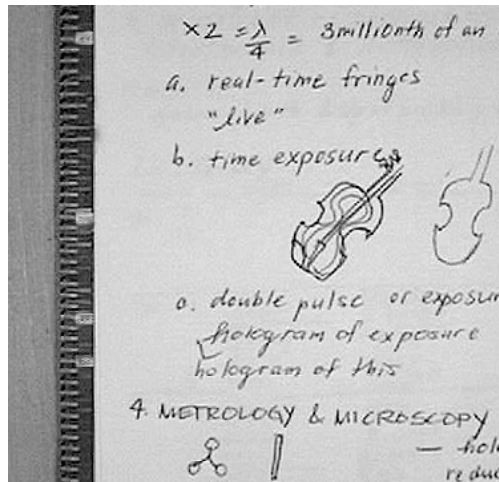 x2 = λ/4 = 3millionth of an
a. real-time fringes
"live"
b. time exposures
c. double pulse or exposur
hologram of exposure
hologram of this
4. METROLOGY & MICROSCOPY
— holo
reduc